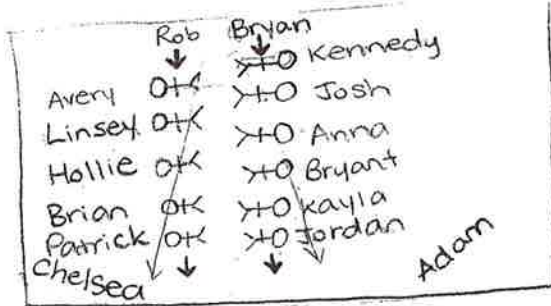 Rob Bryan
Kennedy
Avery Josh
Linsey Anna
Hollie Bryant
Brian Kayla
Patrick Jordan
Chelsea Adam